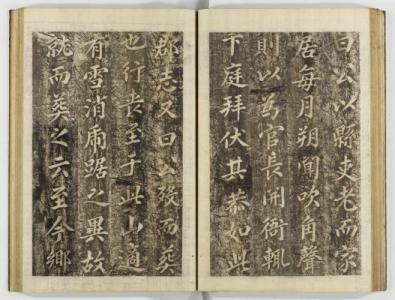 曰公以縣吏老而家
居每月朔聞吹角聲
則以為官長開衙輒
下庭拜伏其恭如此
郡志又曰公歿而葬
也行喪至于此山適
有雪消虎踞之異故
就而葬之云至今鄉